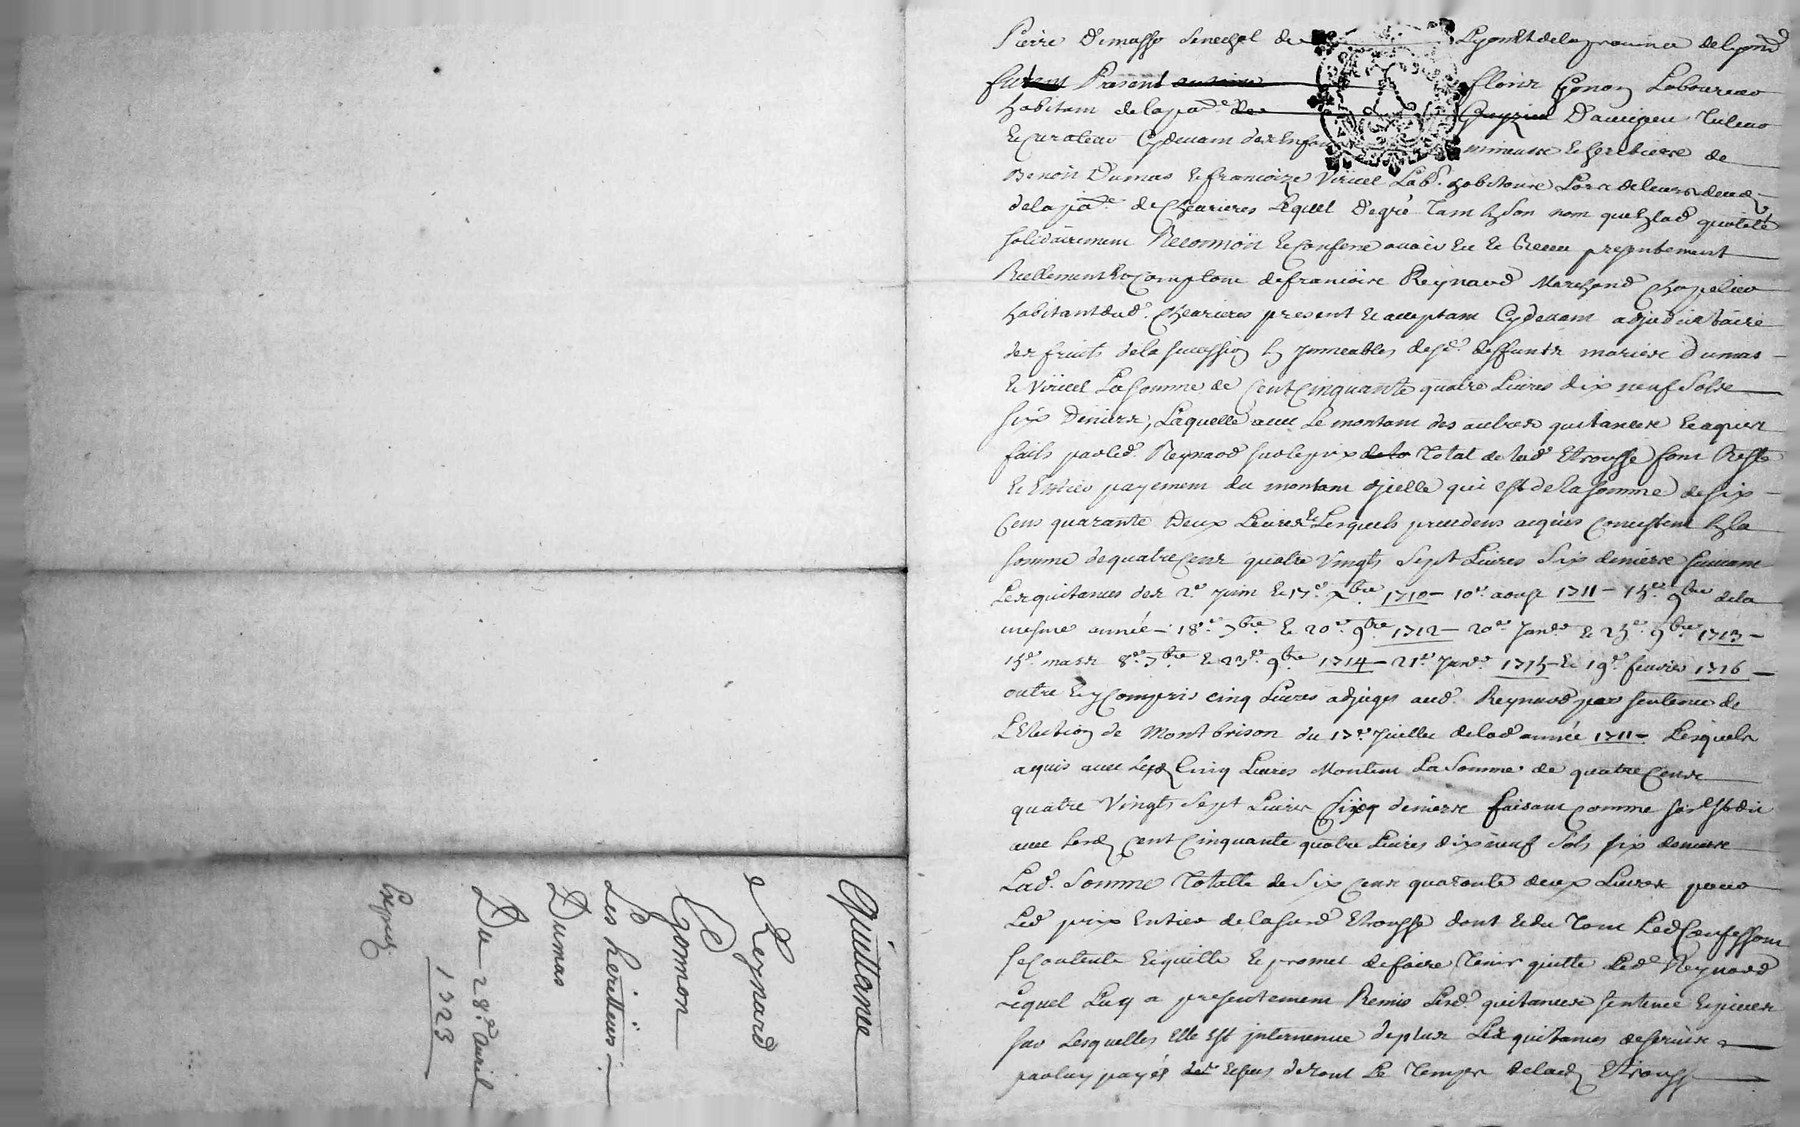 Quittance
Reynard
Gonnon
Les heritiers
Dumas
Du 28e avril
1723
Pierre Dimasse senechal de Lyon et de la province de lyond
furent Present fleury Gonon Laboureur
habitant de la pase de Grezieu D'aveizieu Tuteur
et curateur Cydevant des Enfans mineurs et heritiers de
Benoit Dumas et francoize Viricel Labs. habitans Lors de leurs deced
de la pase de Chevrieres Lequel De gré Tant En Son nom quen lad. qualité
solidairement Reconnoit et confesse avoir Eu et Receu presentement
Reellement et Comptant de francoise Reynaud Marchand chapelier
habitant dud. Chevrieres present et acceptant Cydevant adjudicataire
des fruits de la sucession En Jmmeubles desd. deffunts mariés Dumas
et Viricel La Somme de Cent Cinquante quatre Livres dix neuf Solz
six Deniers, Laquelle avec Le montant des autres quitances et aquis
faits par led. Reynaud sur le prix de la Total de lad. Etrousse font Reste
et Entier payement du montant djcelle qui est de la somme de six
Cens quarante Deux Livres et Lesquels precedens acquis consistent En la
somme de quatre Cens quatre Vingts Sept Livres Six deniers suivant
Les quitances des 2e Juin et 17e Xbre 1710 - 10e aoust 1711 - 15e 9bre de la
mesme année - 18e 7bre et 20e 9bre 1712 - 20e Janv. et 25e 9bre 1713 -
15e mars 8e 7bre et 23e 9bre 1714 - 21e Janv. 1715 - Et 19e fevrier 1716 -
outre et y Compris cinq Livres adjuges aud. Reynaud par sentence de
L'Election de Montbrison du 13e Juillet de lad. année 1711 - Lesquels
aquis avec Lesd. Cinq Livres Montent La Somme de quatre Cens
quatre Vingts Sept Livres Six deniers faisant comme sus Est dit
avec Lesd. Cent Cinquante quatre Livres dix neuf Sols six deniers
Lad. Somme Totalle de Six Cens quarante deux Livres pour
Led. prix Entier de la susd. Etrousse dont et du Tout Led. Confessant
se Contente Et quitte et promet de faire Tenir quitte Led. Reynaud
Lequel Luy a presentement Remis Lesd. quitances sentence et pieces
sur Lesquelles Elle Est jntervenue de plus Les quitances
par luy payés des pendant Le Temps de lad. Etrousse